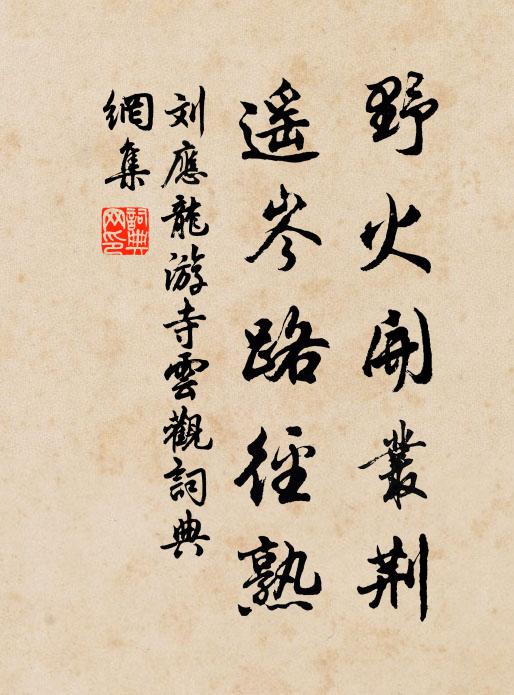 野火開叢荆
遥岑路徑熟
刘應龍游寺雲觀詞典
網集
詞典
网印